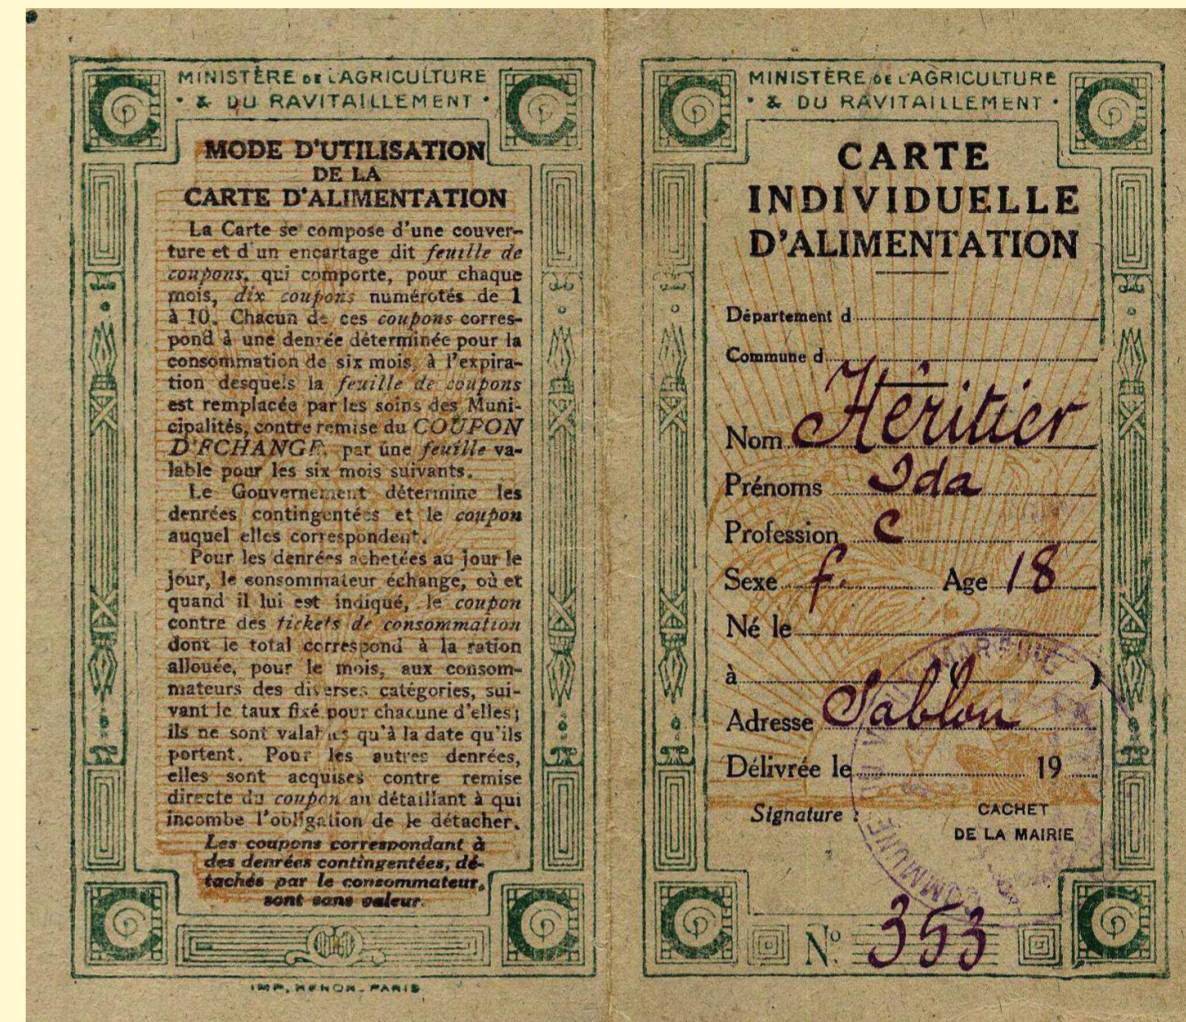 MINISTÈRE DE L'AGRICULTURE
& DU RAVITAILLEMENT
MODE D'UTILISATION
DE LA
CARTE D'ALIMENTATION
La Carte se compose d'une couver-
ture et d'un encartage dit feuille de
coupons, qui comporte, pour chaque
mois, dix coupons numérotés de 1
à 10. Chacun de ces coupons corres-
pond à une denrée déterminée pour la
consommation de six mois, à l'expira-
tion desquels la feuille de coupons
est remplacée par les soins des Muni-
cipalités, contre remise du COUPON
D'ÉCHANGE, par une feuille va-
lable pour les six mois suivants.
Le Gouvernement détermine les
denrées contingentées et le coupon
auquel elles correspondent.
Pour les denrées achetées au jour le
jour, le consommateur échange, où et
quand il lui est indiqué, le coupon
contre des tickets de consommation
dont le total correspond à la ration
allouée, pour le mois, aux consom-
mateurs des diverses catégories, sui-
vant le taux fixé pour chacune d'elles;
ils ne sont valables qu'à la date qu'ils
portent. Pour les autres denrées,
elles sont acquises contre remise
directe du coupon au détaillant à qui
incombe l'obligation de le détacher.
Les coupons correspondant à
des denrées contingentées, dé-
tachés par le consommateur,
sont sans valeur.
MINISTÈRE DE L'AGRICULTURE
& DU RAVITAILLEMENT
CARTE
INDIVIDUELLE
D'ALIMENTATION
Département d
Commune d
Nom Héritier
Prénoms Ida
Profession C
Sexe f. Age 18
Né le
à
Adresse Sablon
Délivrée le 19
Signature :
CACHET
DE LA MAIRIE
N° 353